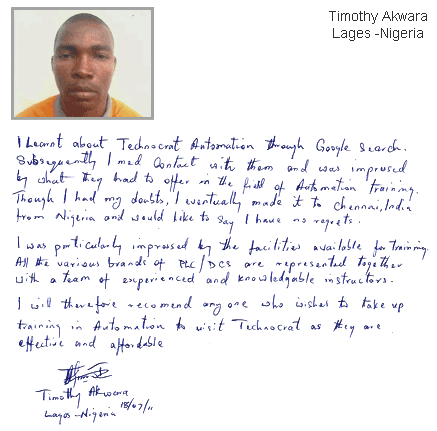 Timothy Akwara
Lages -Nigeria
I Learnt about Technocrat Automation through Google Search.
Subsequently I mad Contact with them and was impressed
by what they had to offer in the field of Automation training.
Though I had my doubts, I eventually made it to Chennai, India
from Nigeria and would like to say I have no regrets.
I was particularly impressed by the facilities available for training.
All the various brands of PLC/DCS are represented together
with a team of experienced and knowledgable instructors.
I will therefore recomend any one who wishes to take up
training in Automation to visit Technocrat as they are
effective and affordable
Timothy Akwara
Lagos - Nigeria 18/07/11